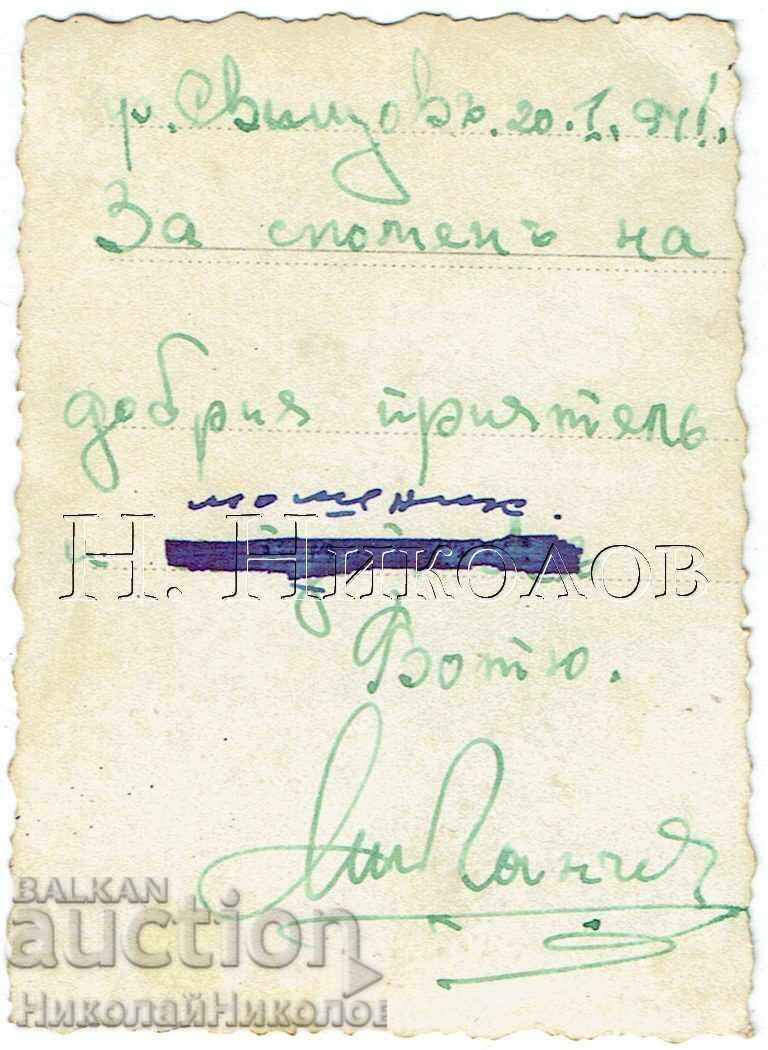 гр. Свищовъ. 20.I.941.
За споменъ на
добрия приятель
мошеник.
Н. Николов
Ботю.
BALKAN
auction
НиколайНиколов